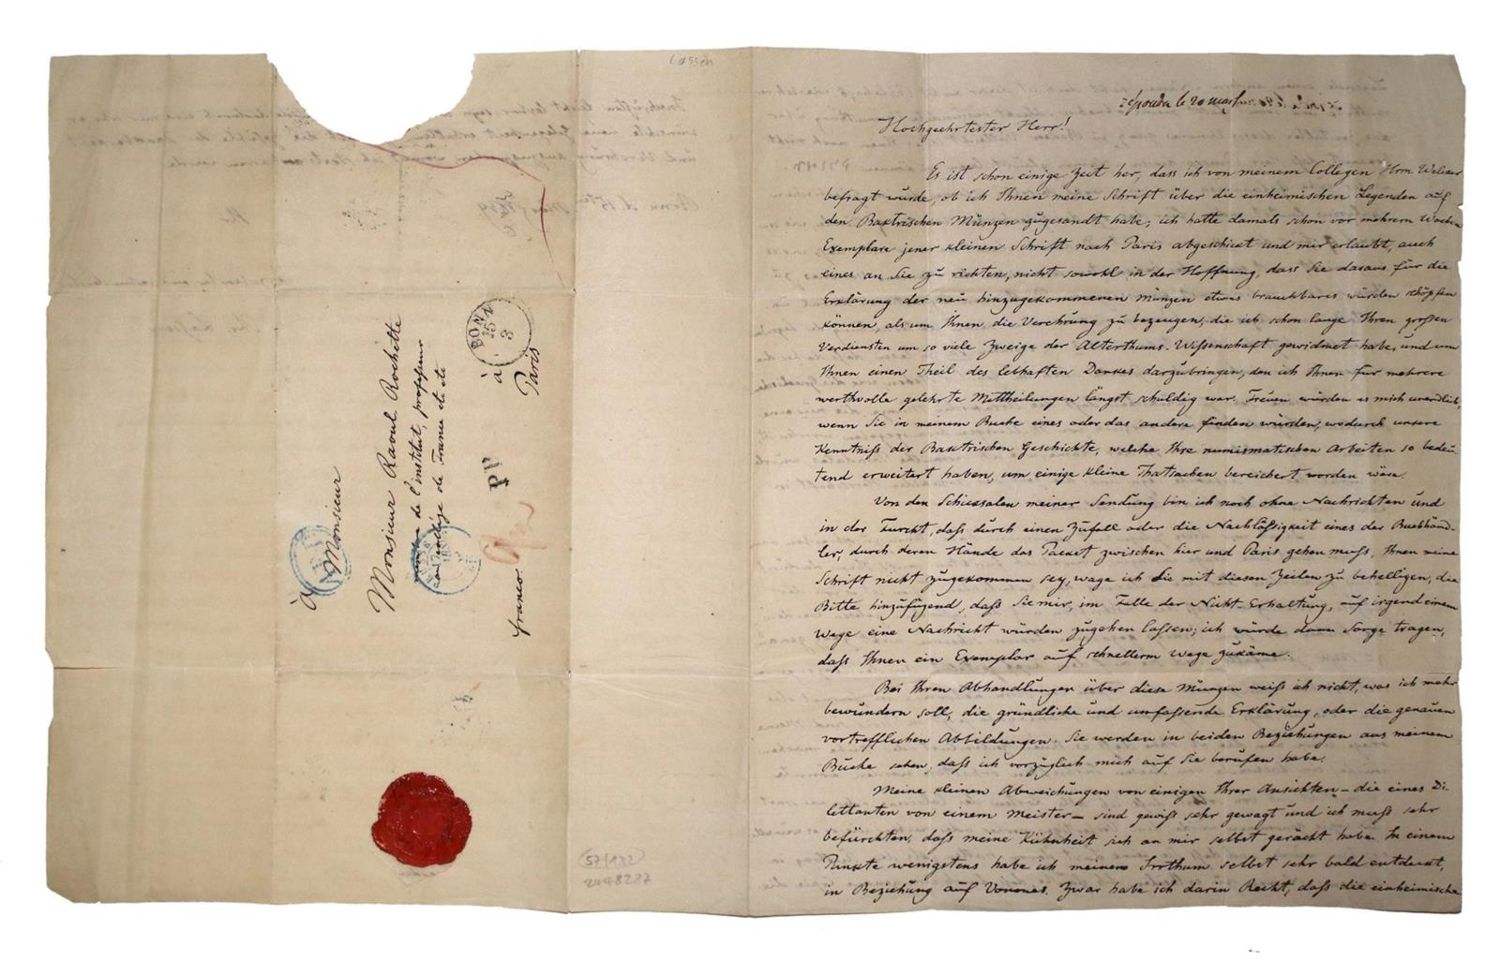 Lassen
répondu le 20 mars
Hochgeehrtester Herr!
Es ist schon einige Zeit her, dass ich von meinem Collegen Hrn. Welcker
befragt wurde, ob ich Ihnen meine Schrift über die einheimischen Legenden auf
den Baktrischen Münzen zugesandt habe; ich hatte damals schon vor mehrern Wochen
Exemplare jener kleinen Schrift nach Paris abgeschickt und mir erlaubt, auch
eines an Sie zu richten, nicht sowohl in der Hoffnung, dass Sie daraus für die
Erklärung der neu hinzugekommenen Münzen etwas brauchbares würden schöpfen
können, als um Ihnen die Verehrung zu bezeugen, die ich schon lange Ihren großen
Verdiensten um so viele Zweige der Alterthums-Wißenschaft gewidmet habe, und um
Ihnen einen Theil des lebhaften Dankes darzubringen, den ich Ihnen für mehrere
werthvolle gelehrte Mittheilungen längst schuldig war. Freuen würden es mich unendlich,
wenn Sie in meinem Buche eines oder das andere finden würden, wodurch unsere
Kenntniß der Baktrischen Geschichte, welche Ihre numismatischen Arbeiten so bedeu-
tend erweitert haben, um einige kleine Thatsachen bereichert worden wäre.
Von den Schicksalen meiner Sendung bin ich noch ohne Nachrichten und
in der Furcht, daß durch einen Zufall oder die Nachläßigkeit eines der Buchhänd-
ler, durch deren Hände das Packet zwischen hier und Paris gehen muß, Ihnen meine
Schrift nicht zugekommen sey, wage ich Sie mit diesen Zeilen zu behelligen, die
Bitte hinzufügend, daß Sie mir, im Falle der Nicht-Erhaltung, auf irgend einem
Wege eine Nachricht würden zugehen laßen; ich würde dann Sorge tragen,
daß Ihnen ein Exemplar auf schnellerm Wege zukäme.
Bei Ihren Abhandlungen über diese Münzen weiß ich nicht, was ich mehr
bewundern soll, die gründliche und umfassende Erklärung, oder die genauen
vortrefflichen Abbildungen. Sie werden in beiden Beziehungen aus meinem
Buche sehen, daß ich vorzüglich mich auf Sie berufen habe.
Meine kleinen Abweichungen von einigen Ihrer Ansichten – die eines Di-
lettanten von einem Meister – sind gewiß sehr gewagt und ich muß sehr
befürchten, daß meine Kühnheit sich an mir selbst gerächt habe. In einem
Punkte wenigstens habe ich meinen Irrthum selbst sehr bald entdeckt,
in Beziehung auf Vonones. Zwar habe ich darin Recht, daß die einheimische
à Monsieur
Monsieur Raoul Rochette
de l'institut, professeur
au collége de France etc etc
à
Paris
franco
BONN
PP
57/132